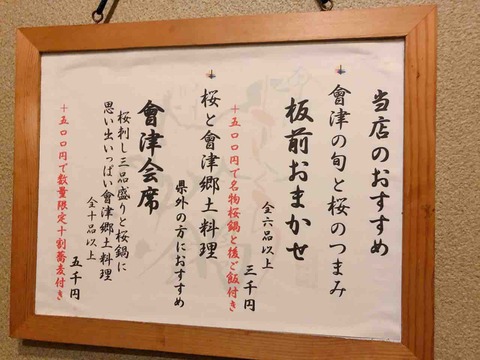 当店のおすすめ
會津の旬と桜のつまみ
板前おまかせ
全六品以上
三千円
+五〇〇円で名物桜鍋と後ご飯付き
桜と會津郷土料理
県外の方におすすめ
會津会席
桜刺し三品盛りと桜鍋に
思い出いっぱい會津郷土料理
全十品以上
五千円
+五〇〇円で数量限定十割蕎麦付き